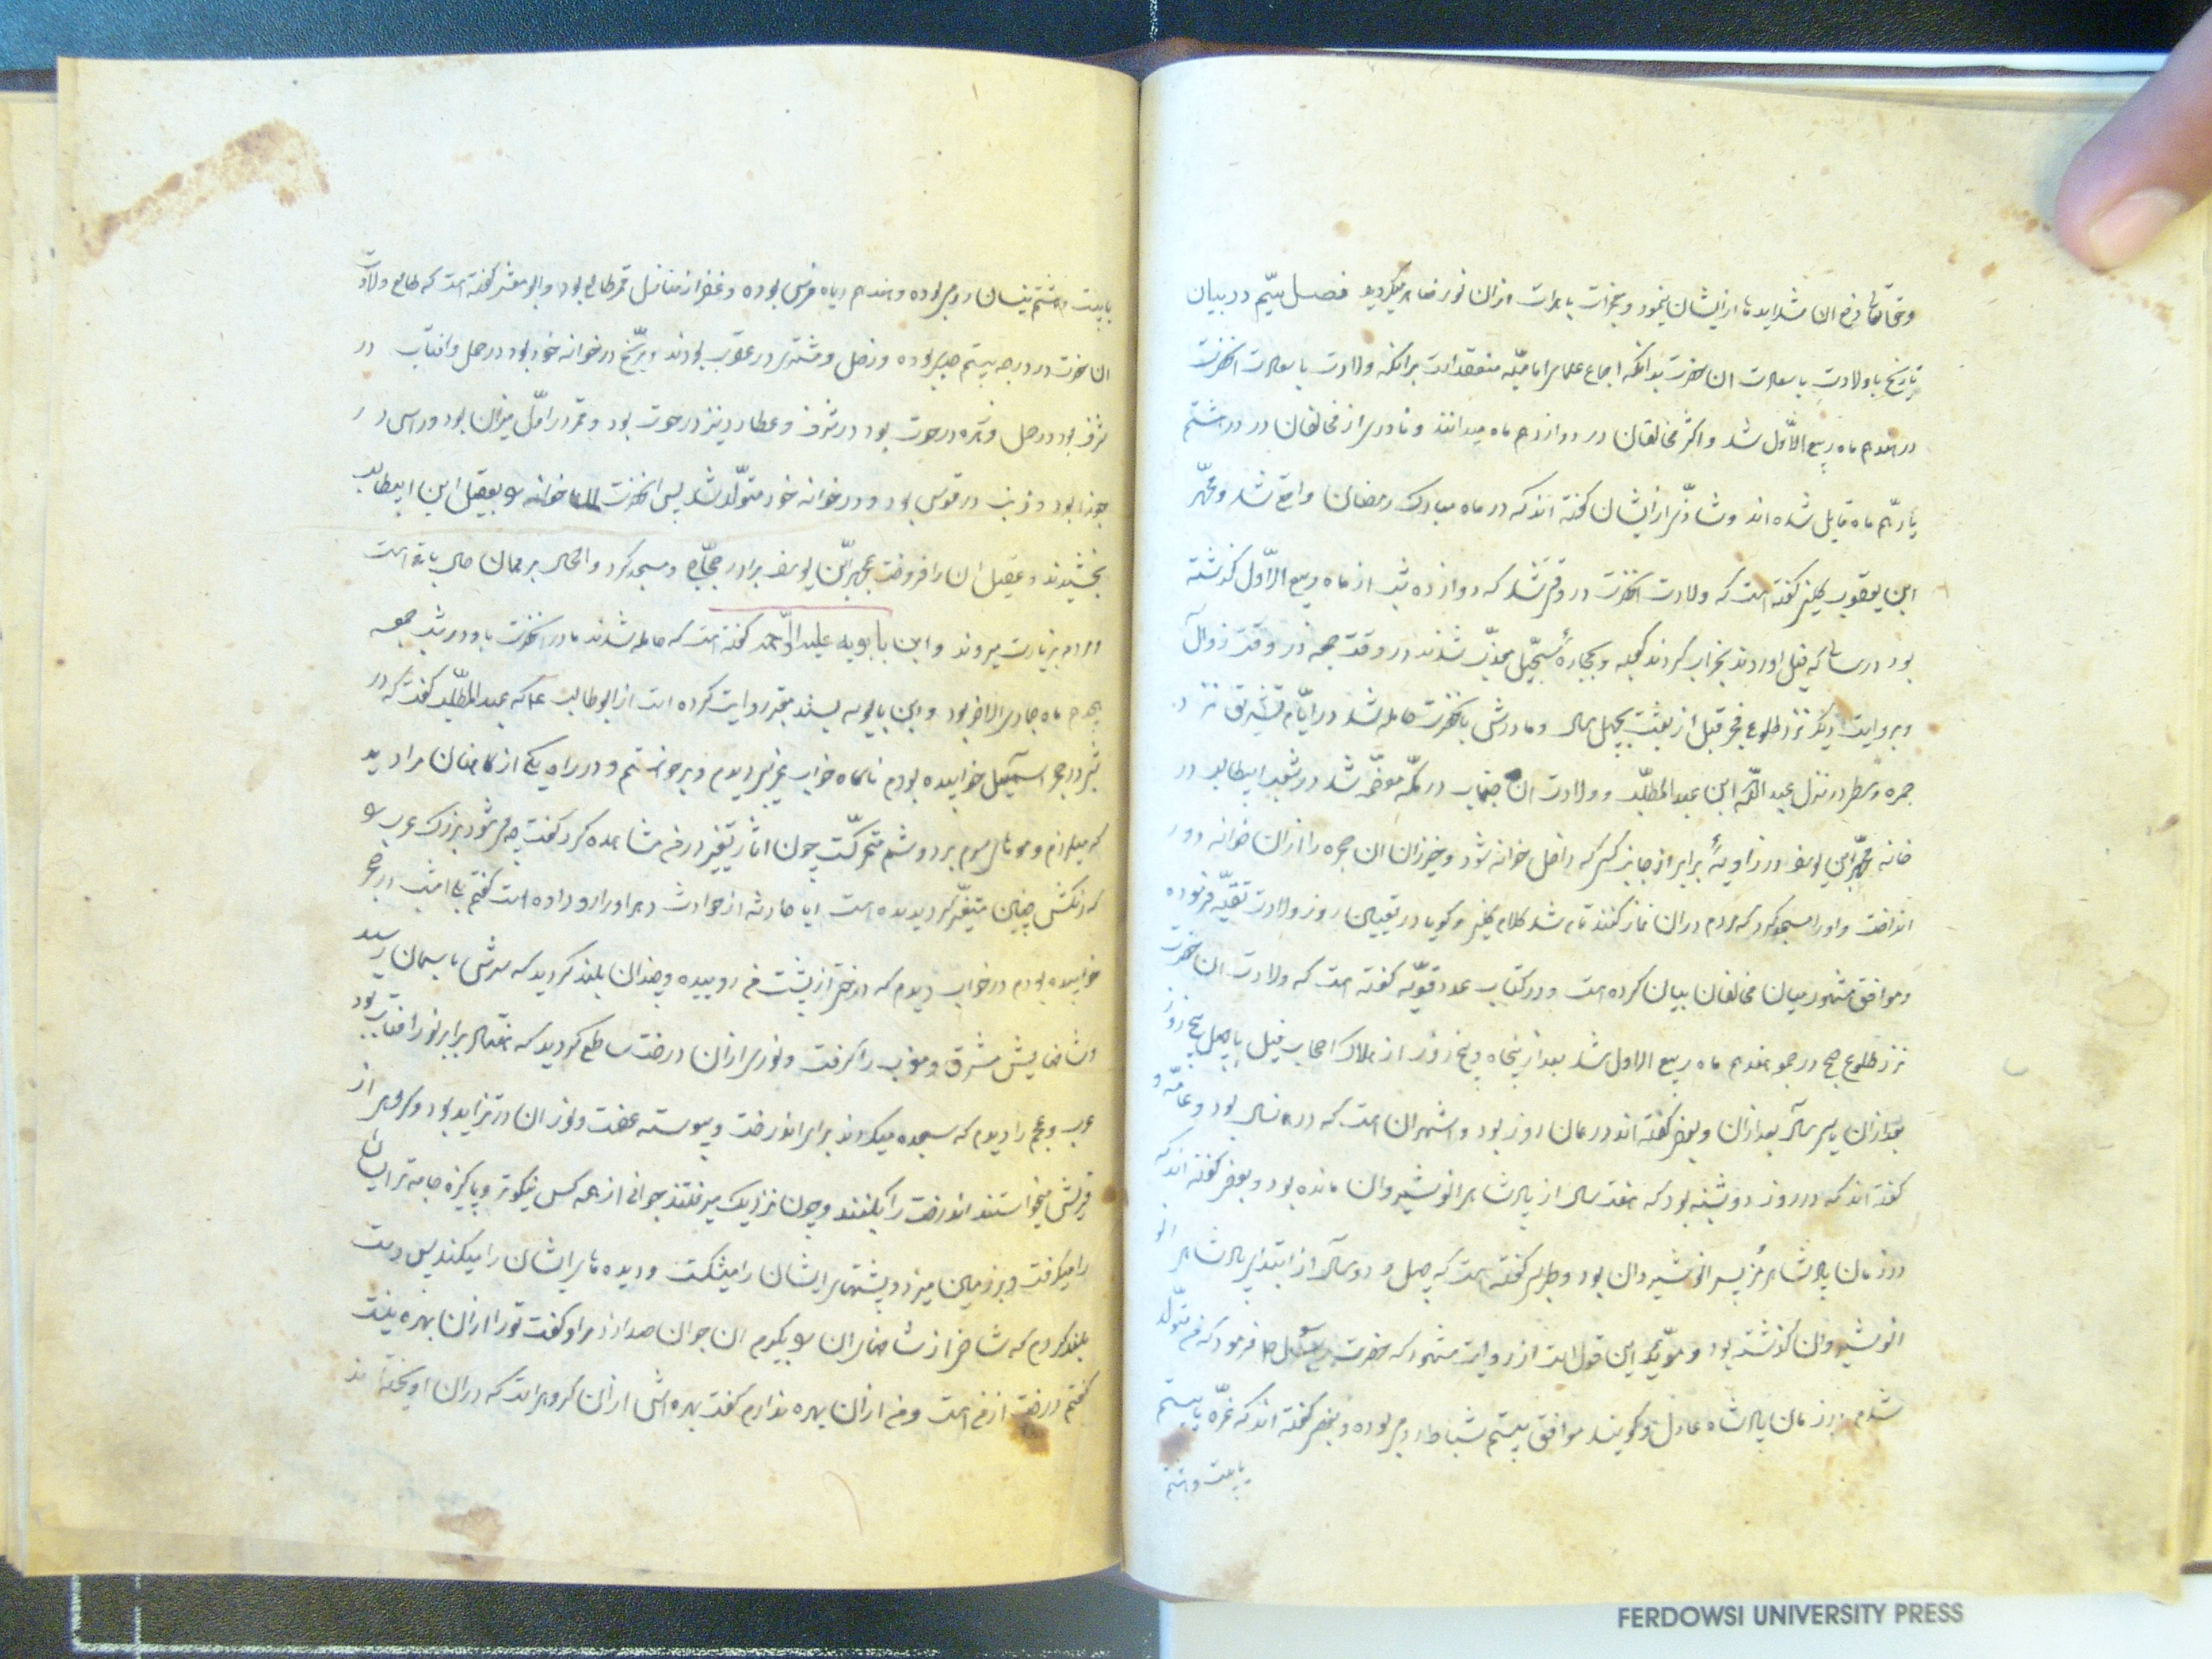 وحق تعالی رفع ان شداید تا از ایشان مینمود و معجزات باهرات از ان نور ظاهر میگردید فصل سیّم در بیان
تاریخ با ولادت با سعادت ان حضرت بدانکه اجماع علمای امامیّه منعقد است برانکه ولادت با سعادت انحضرت
در هفدهم ماه ربیع الاّول شد و اکثر مخالفان در دوازدهم ماه میدانند و نادری از مخالفان در در هشتم
یا دهم ماه قایل شده اند و شاذّی از ایشان گفته اند که در ماه مبارک رمضان واقع شد و محمّد
ابن یعقوب کلینی گفته است که ولادت انحضرت در وقتی شد که دوازده شب از ماه ربیع الاّول گذشته
بود در سالی که فیل اوردند بخراب کردند کعبه و بحجاره سجّیل معذّب شدند در وقت جمعه در وقت زوال
و بروایت دیگر نزد طلوع فجر قبل از بعثت بچهل سال و مادرش بانحضرت حامله شد در ایّام تشریق نزد
جمره وسطی در منزل عبد اللّه ابن عبد المطلّب و ولادت ان جناب در مکّه معظّمه شد در شعب ابیطالب در
خانه محمّد ابن یوسف در زاویهٔ برابر از جانب کسی که داخل خانه شود و خیزران ان حجره را از ان خانه دور
انداخت و او را مسجد کرد که مردم در ان نماز کنند تمام شد کلام کلینی و گویا در تعیین روز ولادت تقیّه فرموده
و موافق مشهور میان مخالفان بیان کرده است و در کتاب عدد قویّه گفته است که ولادت ان حضرت
نزد طلوع صبح در جمعه هفدهم ماه ربیع الاول شد بعد از پنجاه و پنج روز از هلاک اصحاب فیل یا چهل پنج روز
بعد از ان یا سی سال بعد از ان و بعضی گفته اند در همان روز بود و اشهر ان است که در همان سال بود و عامّه و
گفته اند که در روز دوشنبه بود که هفت سال از پادشاهی انوشیروان مانده بود و بعضی گفته اند که
در زمان پادشاه هرمز پسر انوشیروان بود و طبری گفته است که چهل و دو سال از ابتدای پادشاهی انو
انوشیروان گذشته بود و مؤیّد این قول است از روایت مشهور که حضرت رسول ص فرمود که من متولّد
شدم در زمان پادشاه عادل و گویند موافق بیستم شباط رومی بوده و بعضی گفته اند که غرّه یا بیستم
یا بیست و هشتم
یا بیست و هشتم نیسان رومی بوده و هفدهم دیماه فرسی بوده و غفر از منازل قمر طالع بود و ابو معشر گفته است که طالع ولادت
ان حضرت در درجه بیستم جدی بوده و زحل و مشتری در عقرب بودند و مرّیخ در خوانه خود بود در حمل و افتاب در
شرف بود در حمل و زهره در حوت بود در شرف و عطارد نیز در حوت بود و قمر در اوّل میزان بود و راس در
جوزا بود و ذنب در قوس بود و در خوانه خود متولّد شد پس انحضرت خوانه را بعقیل ابن ابیطالب
بخشیدند و عقیل ان را فروخت بمحمّد ابن یوسف برادر حجّاج و مسجد کرد و الحال بر همان حال باقی است
مردم بزیارت میروند و ابن بابویه علیه الرّحمه گفته است که حامله شدند مادر انحضرت باو در شب جمعه
هجدهم ماه جمادی الاخر بود و ابن بابویه بسند معتبر روایت کرده است از ابو طالب عا که عبد المطّلب گفت که در
شبی در حجر اسمعیل خوابیده بودم ناگاه خواب غریبی دیدم و برخواستم و در راه یکی از کاهنان مرا دید
که میلرزم و موهای سرم بر دوشم متحرکست چون اثار تغیر در من مشاهده کرد گفت چه میشود بزرگ عرب را
که رنکش چنین متغیّر گردیده است ایا حادثه از حوادث دهر او را رو داده است گفتم بلی امشب در حجر
خوابیده بودم در خواب دیدم که درختی از پشت من روییده و چندان بلند گردید که سرش باسمان رسید
و شاخهایش مشرق و مغرب را گرفت و نوری از ان درخت ساطع گردید که هفتاد برابر نور افتاب بود
عرب و عجم را دیدم که سجده میکردند برای اندرخت و پیوسته عظمت و نور ان در تزاید بود و گروهی از
قریش میخواستند اندرخت را بکنند و چون نزدیک میرفتند جوانی از همه کس نیکوتر و پاکیزه جامه تر ایشان
را میگرفت و بر زمین میزد و پشتهای ایشان را میشکست و دیده های ایشان را میکند پس دست
بلند کردم که شاخی از شاخهای ان را بگیرم ان جوان صدا زد مرا و گفت تو را از ان بهره نیست
گفتم درخت از من است و من از ان بهره ندارم گفت بهره اش از ان گروهی است که در ان اویخته اند
FERDOWSI UNIVERSITY PRESS